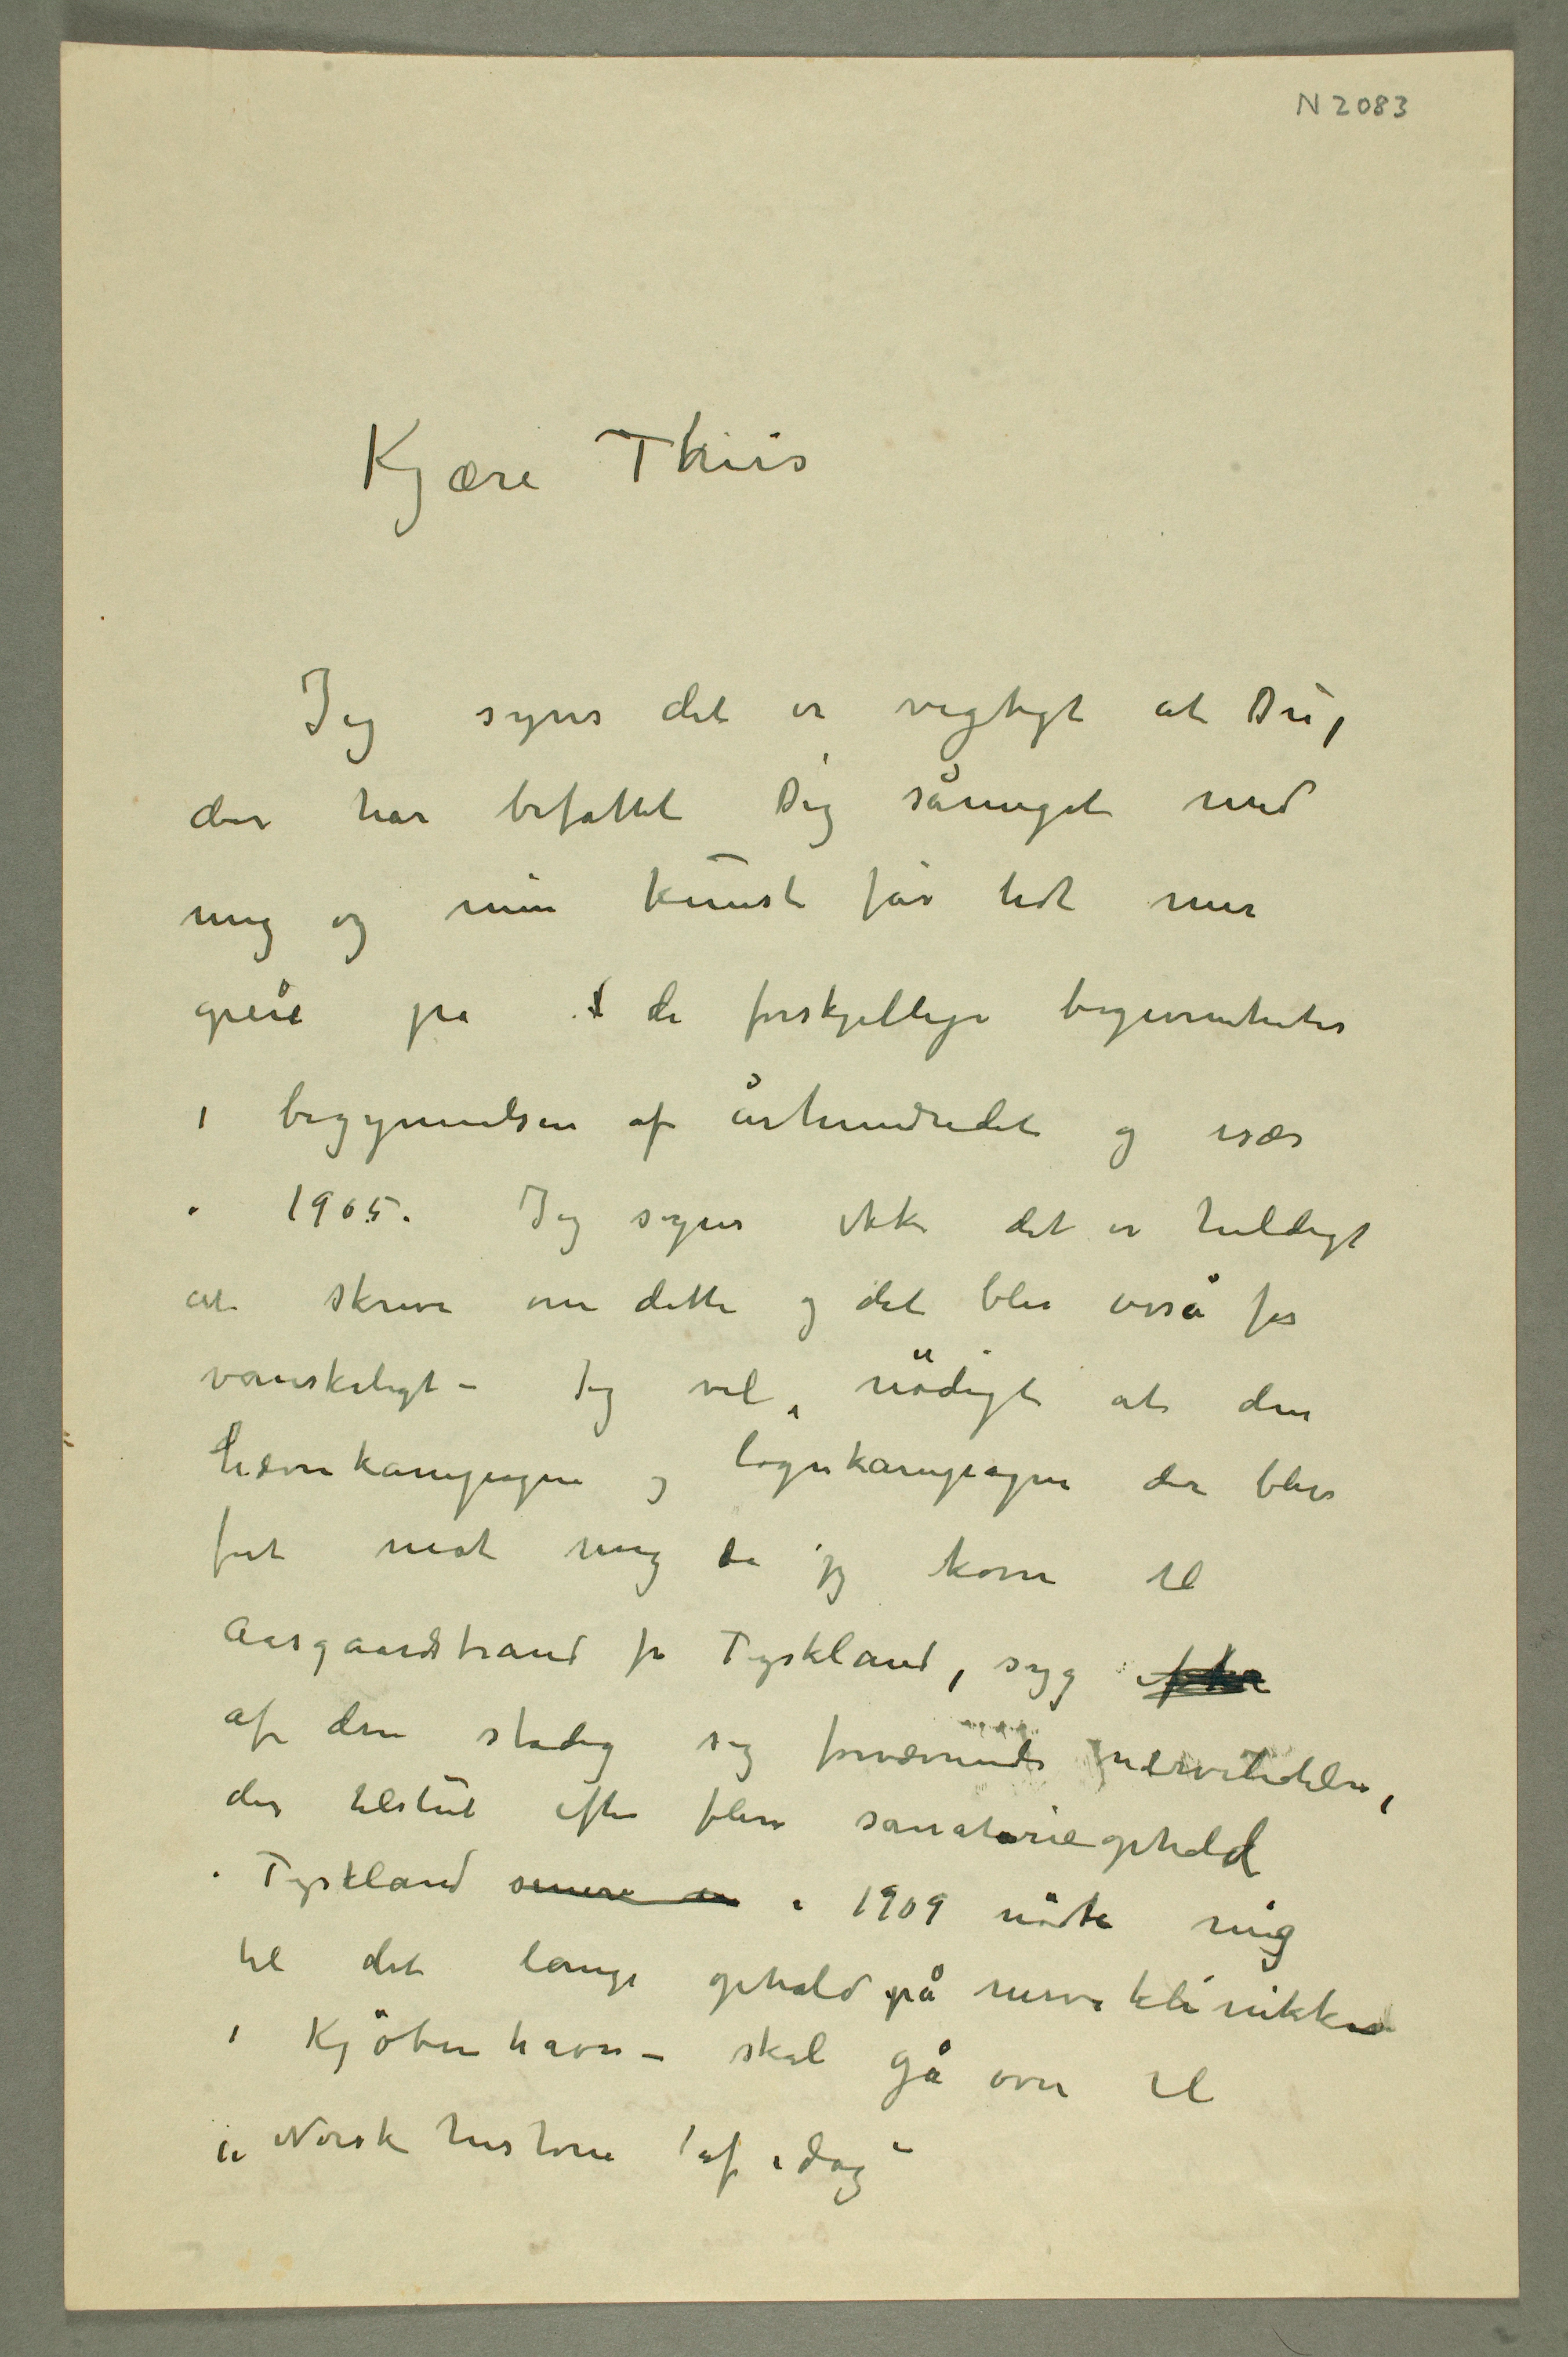 N 2083
Kjære Thiis
Jeg synes det er vigtigt at Du,
der har befattet Dig såmeget med
mig og min kunst får lidt mer
greie på de forskjellige begivenheter
i begynnelsen af århundredet og især
i 1905. Jeg synes ikke det er heldigt
at skrive om dette og det blir også for
vanskeligt – Jeg vil nödigt at den
hævnkampagne og lögnkampagne der blev
fört mot mig da jeg kom til
Aasgaardstrand fra Tyskland, syg
af den stadig sig forværrende nervelidelse,
der tilslut efter flere sanatorieophold
i Tyskland senere i 1909 nödte mig
til det lange ophold på nerveklinikken
i Kjöbenhavn – skal gå over til
„Norsk historie af idag“